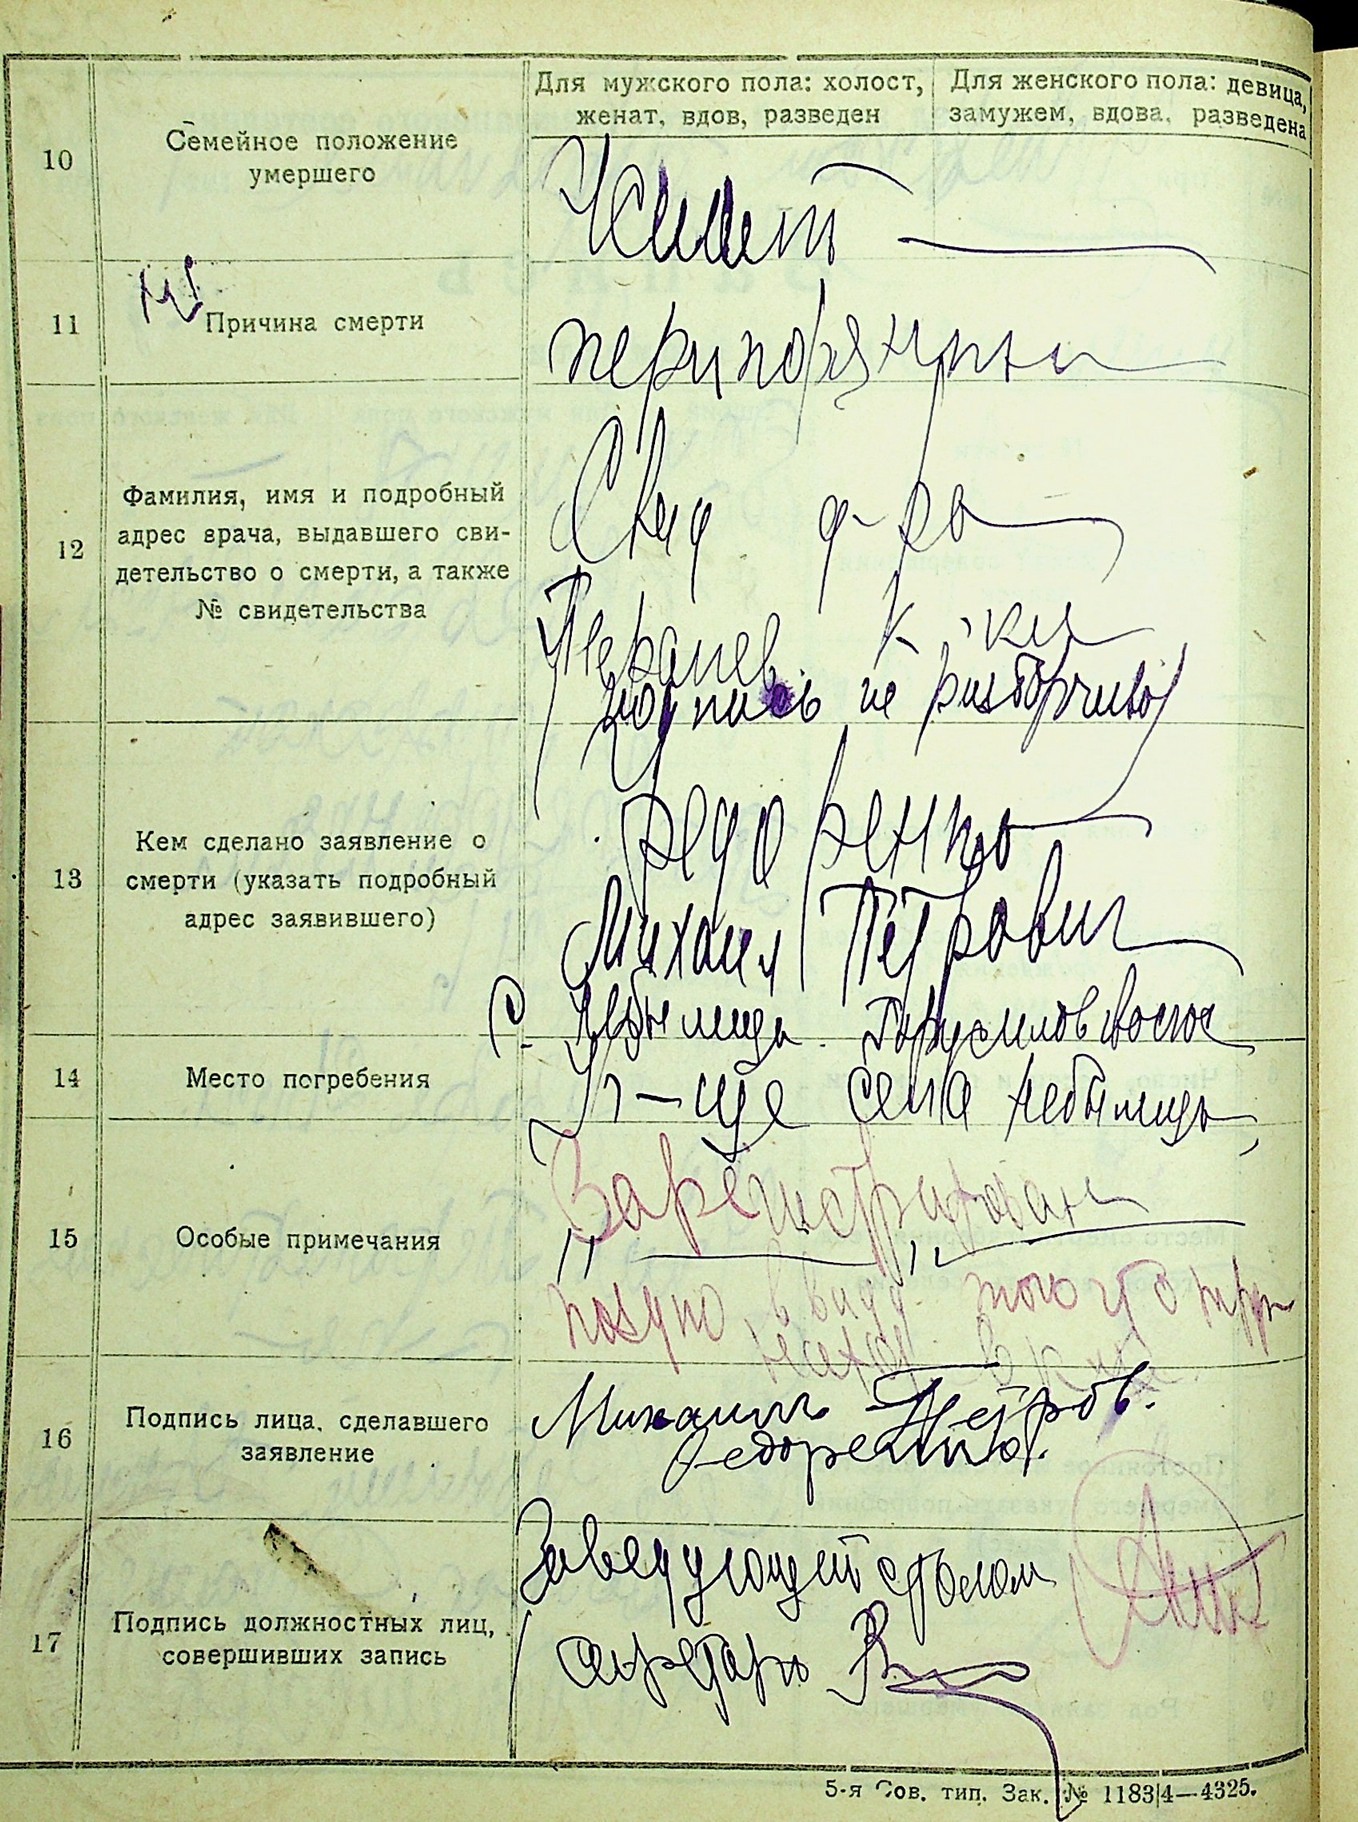 Для мужского пола: холост, женат, вдов, разведен
Для женского пола: девица, замужем, вдова, разведена
10
Семейное положение
умершего
Женат
11
Причина смерти
12
Фамилия, имя и подробный
адрес врача, выдавшего сви-
детельство о смерти, а также
№ свидетельства
Свид д-ра
Терапев. к-ки
подпись не разборчива
13
Кем сделано заявление о
смерти (указать подробный
адрес заявившего)
Федоренко
Михаил Петрович
с. Небылица
14
Место погребения
Кл-ще села Небылицы
15
Особые примечания
Зарегистрирован
поздно в виду того что
16
Подпись лица, сделавшего
заявление
Михаил Петров.
Федоренко
17
Подпись должностных лиц,
совершивших запись
Заведующий столом
секретарь
5-я Сов. тип. Зак. № 1183|4—4325.